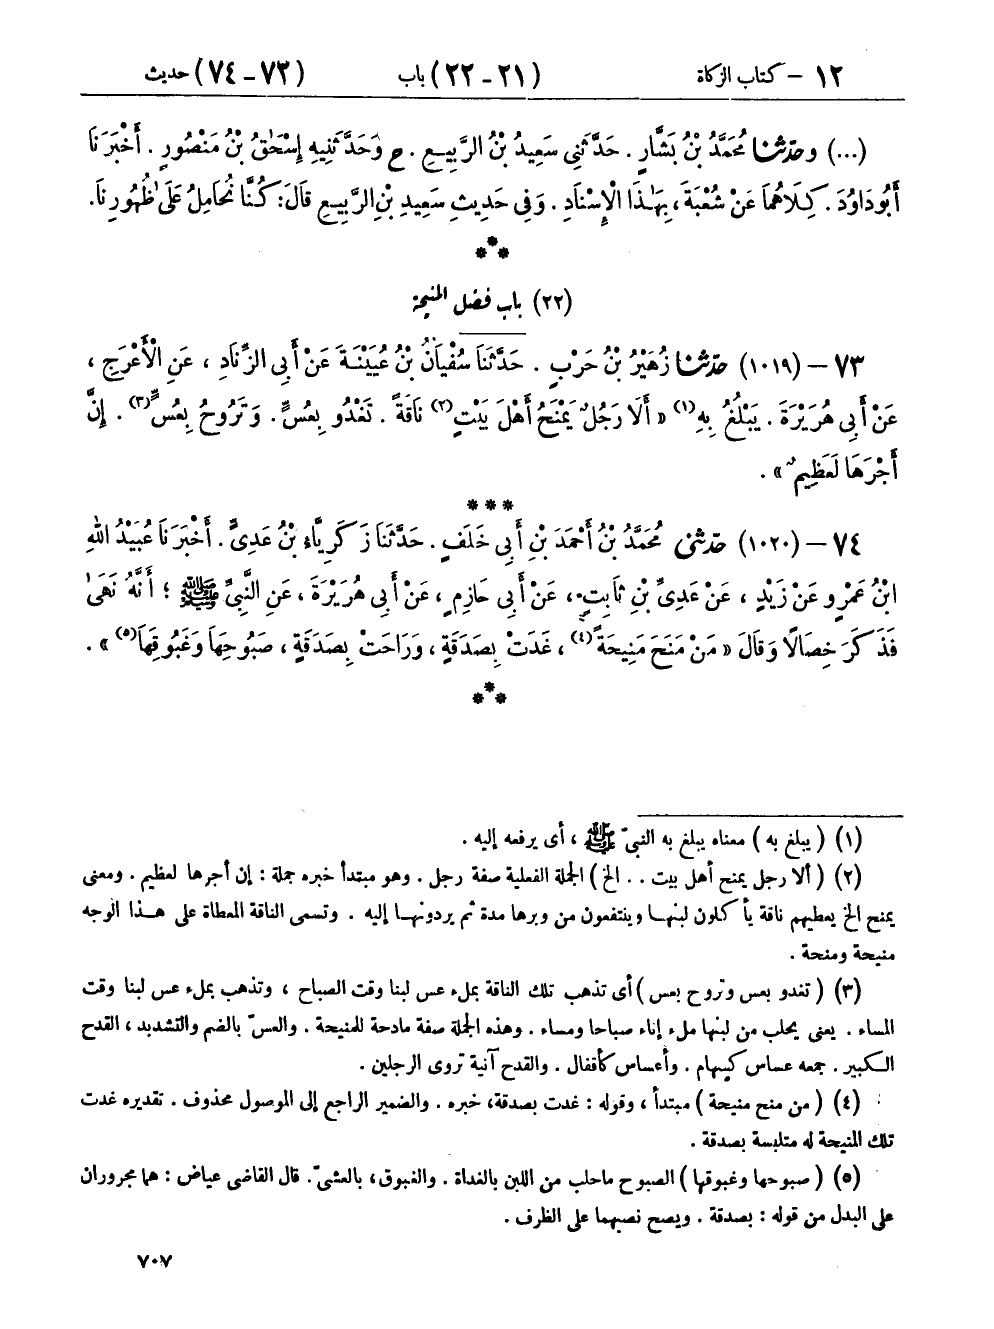 ١٢ - كتاب الزكاة (٢١-٢٢) باب (٧٣-٧٤) حديث
(...) وحدّثنا مُحَمَّدُ بْنُ بَشَّارٍ . حَدَّثَنِي سَعِيدُ بْنُ الرَّبِيعِ . ح وَحَدَّثَنِيهِ إِسْحَقُ بْنُ مَنْصُورٍ . أَخْبَرَنَا
أَبُو دَاوُدَ . كِلَاهُمَا عَنْ شُعْبَةَ ، بِهَذَا الْإِسْنَادِ . وَفِي حَدِيثِ سَعِيدِ بْنِ الرَّبِيعِ قَالَ: كُنَّا نُحَامِلُ عَلَى ظُهُورِنَا.
***
(٢٢) باب فضل المنيحة
٧٣ - (١٠١٩) حدّثنا زُهَيْرُ بْنُ حَرْبٍ . حَدَّثَنَا سُفْيَانُ بْنُ عُيَيْنَةَ عَنْ أَبِي الزِّنَادِ ، عَنِ الْأَعْرَجِ ،
عَنْ أَبِي هُرَيْرَةَ . يَبْلُغُ بِهِ(١) « أَلَا رَجُلٌ يَمْنَحُ أَهْلَ بَيْتٍ(٢) نَاقَةً . تَغْدُو بِعُسٍّ. وَتَرُوحُ بِعُسٍّ(٣) . إِنَّ
أَجْرَهَا لَعَظِيمٌ » .
***
٧٤ - (١٠٢٠) حدّثني مُحَمَّدُ بْنُ أَحْمَدَ بْنِ أَبِي خَلَفٍ . حَدَّثَنَا زَكَرِيَّاءُ بْنُ عَدِيٍّ . أَخْبَرَنَا عُبَيْدُ اللهِ
ابْنُ عَمْرٍو عَنْ زَيْدٍ ، عَنْ عَدِيِّ بْنِ ثَابِتٍ ، عَنْ أَبِي حَازِمٍ ، عَنْ أَبِي هُرَيْرَةَ ، عَنِ النَّبِيِّ ﷺ ؛ أَنَّهُ نَهَى
فَذَكَرَ خِصَالًا وَقَالَ « مَنْ مَنَحَ مَنِيحَةً(٤) ، غَدَتْ بِصَدَقَةٍ ، وَرَاحَتْ بِصَدَقَةٍ ، صَبُوحِهَا وَغَبُوقِهَا(٥) » .
***
(١) ( يبلغ به ) معناه يبلغ به النبيّ ﷺ ، أى يرفعه إليه .
(٢) ( ألا رجل يمنح أهل بيت . . الخ ) الجملة الفعلية صفة رجل . وهو مبتدأ خبره جملة : إن أجرها لعظيم . ومعنى
يمنح الخ يعطيهم ناقة يأكلون لبنها وينتفعون من وبرها مدة ثم يردونها إليه . وتسمى الناقة المعطاة على هذا الوجه
منيحة ومنحة .
(٣) ( تغدو بعس وتروح بعس ) أى تذهب تلك الناقة بملء عس لبنا وقت الصباح ، وتذهب بملء عس لبنا وقت
المساء . يعنى يحلب من لبنها ملء إناء صباحا ومساء . وهذه الجملة صفة مادحة للمنيحة . والعسّ بالضم والتشديد ، القدح
الكبير . جمعه عساس كسهام . وأعساس كأقفال . والقدح آنية تروى الرجلين .
(٤) ( من منح منيحة ) مبتدأ ، وقوله : غدت بصدقة، خبره . والضمير الراجع إلى الموصول محذوف . تقديره غدت
تلك المنيحة له متلبسة بصدقة .
(٥) ( صبوحها وغبوقها ) الصبوح ماحلب من اللبن بالغداة . والغبوق، بالعشىّ. قال القاضى عياض : هما مجروران
على البدل من قوله : بصدقة . ويصح نصبهما على الظرف .
٧٠٧